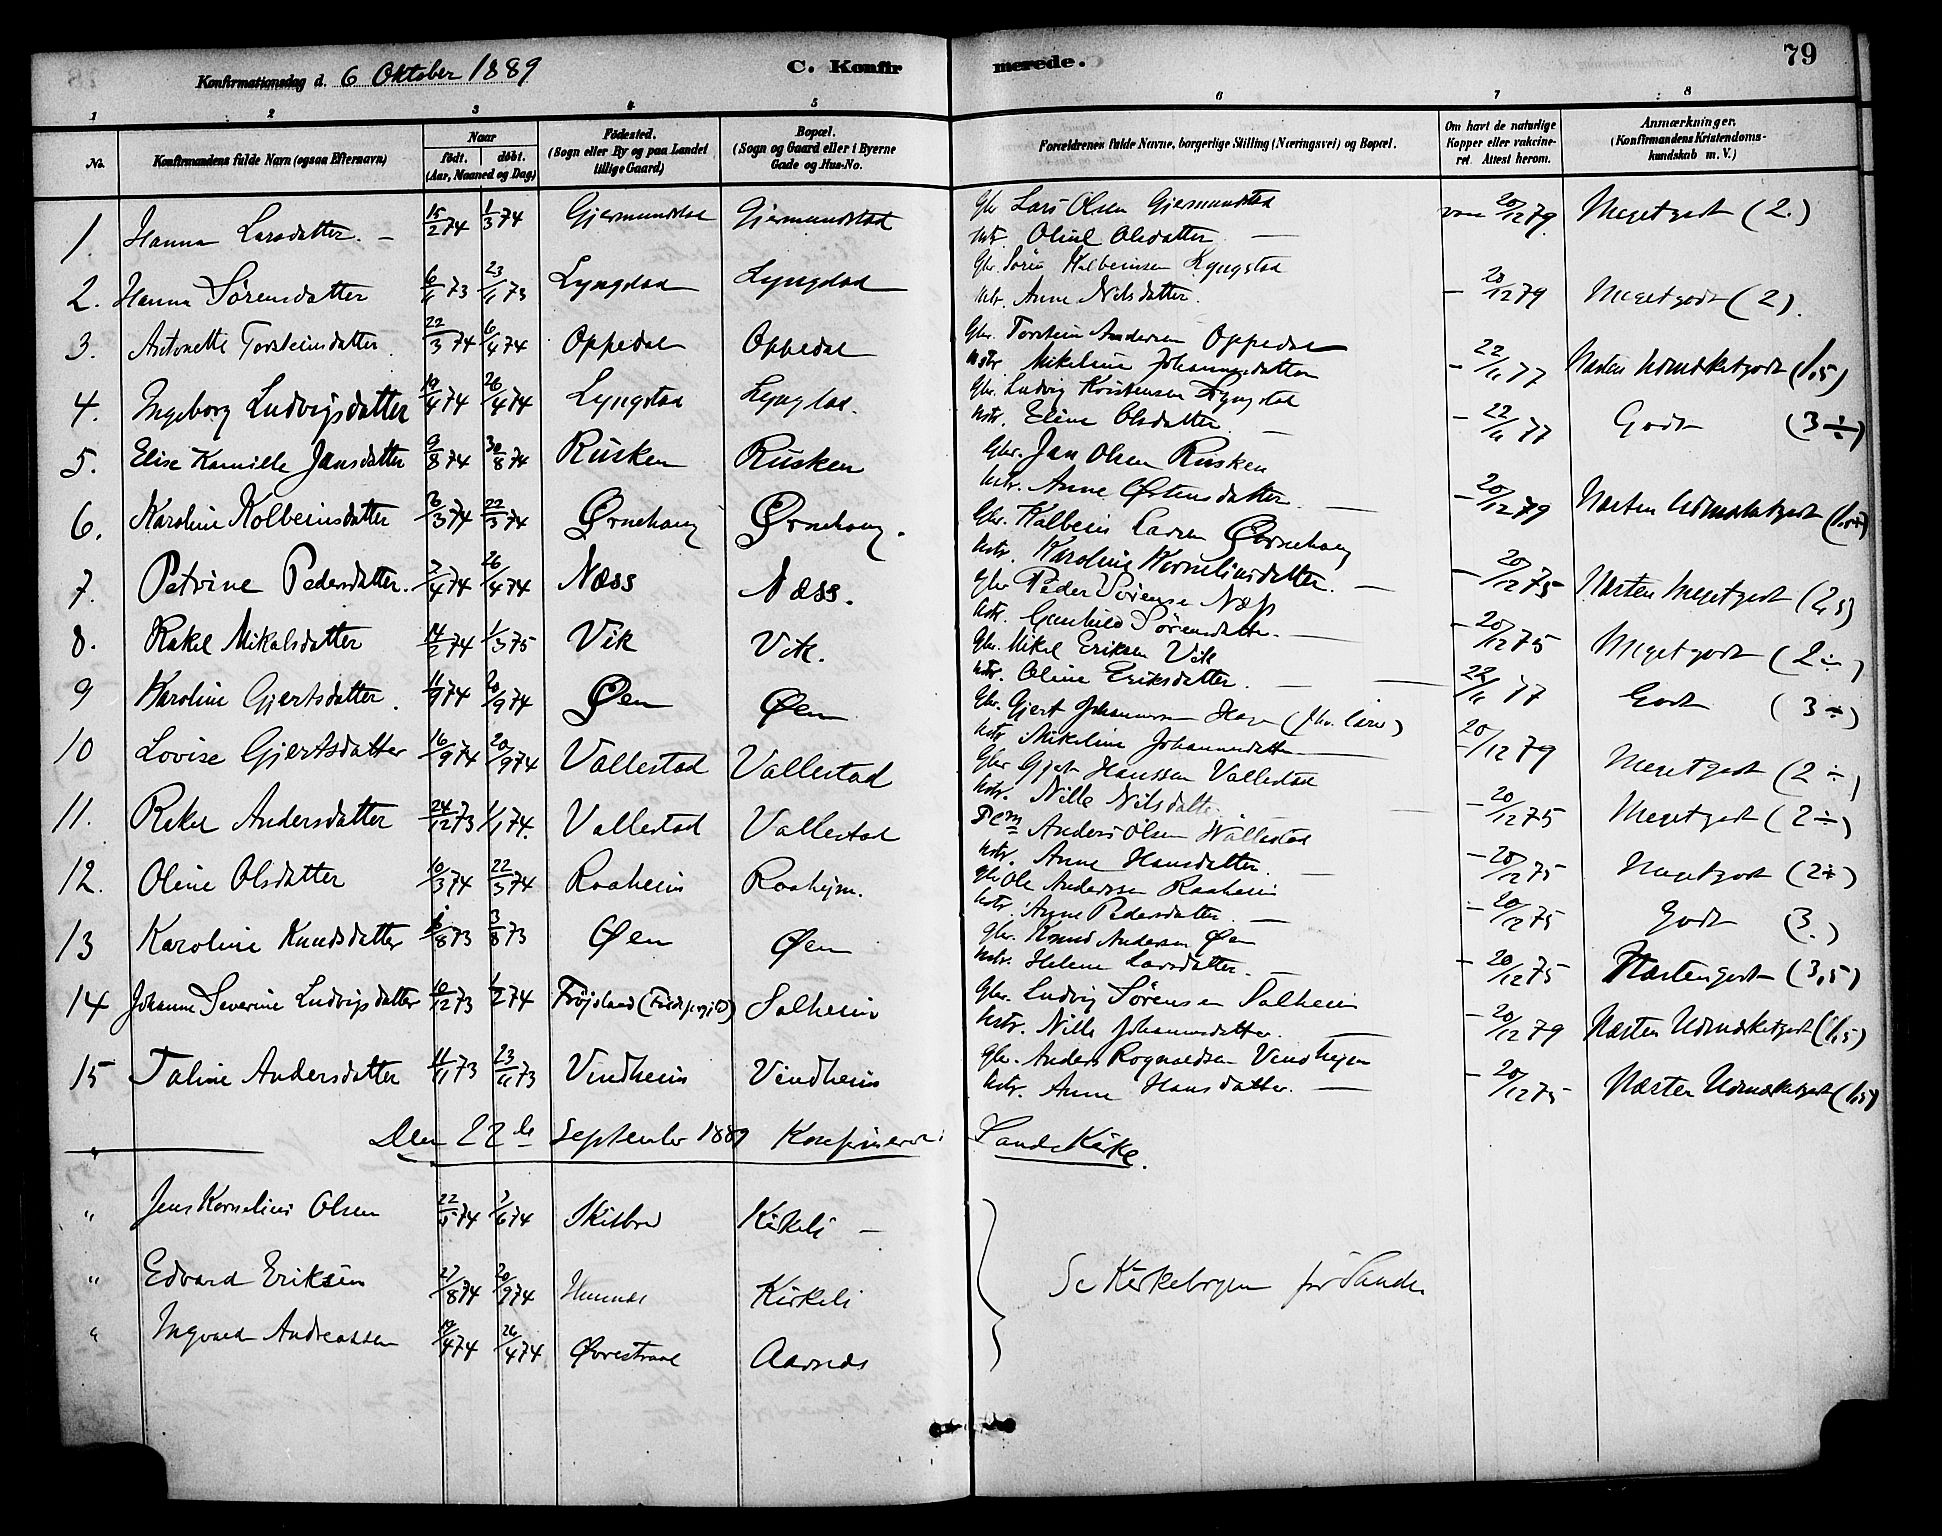 79
Konfirmationsdag d. 6 Oktober 1889 C. Konfirmerede.
1 2 3 4 5 6 7 8
No. Konfirmandens fulde Navn (ogsaa Efternavn) Naar født. døbt. (Aar, Maaned og Dag) Fødested. (Sogn eller By og paa Landet tillige Gaard) Bopæl. (Sogn og Gaard eller i Byerne Gade og Hus-No. Forældrenes fulde Navne, borgerlige Stilling (Næringsvei) og Bopæl. Om havt de naturlige Kopper eller vakcineret. Attest herom. Anmærkninger. (Konfirmandens Kristendomskundskab m. V.)
1. Hanna Larsdatter. 15/2 74 1/3 74 Gjermundstad Gjermundstad Gbr Lars Olsen Gjermundstad 20/12 79. Meget godt (2.)
Olsdatter
2. Hanna Sørensdatter 6/11 73 23/11 73 Lyngstad Lyngstad Gbr. Søren Kolbeinsen Lyngstad 20/12 79 Meget godt (2).
Anne Nilsdatter.
3. Antonette Torsteinsdatter. 22/3 74 6/4 74 Oppedal Oppedal Gbr. Torstein Andersen Oppedal 22/11 77 Næsten Udmærket godt (1,5)
Mikeline Johannesdatter
4. Ingeborg Ludvigsdatter 19/4 74 26/4 74 Lyngstad Lyngstad. Gbr. Ludvig Kristensen Lyngstad 22/11 77 Godt (3÷)
Eline Olsdatter.
5. Elise Kamille Jansdatter 9/8 74 30/8 74 Rusken Rusken Gbr. Jan Olsen Rusken 20/12 79 Næsten Udmærket godt
Anne Østensdatter.
6. Karoline Kolbeinsdatter 22/3 74 Ørnehaug Ørnehaug. Gbr. Kolbein Larsen Ørnehaug 20/12 75 Næsten Meget godt (2,5)
Karoline Kornelinsdatter.
7. Petrine Pedersdatter. 26/4 74 Næss Næss. Gbr Peder Sørensen Næss 20/12 75 Meget godt (2÷)
Gunhild Sørensdatter.
8. Rakel Mikalsdatter 14/2 74 1/3 75 Vik Vik. Gbr. Mikel Eriksen Vik 22/11 77 Godt (3÷)
Oline Eriksdatter.
9 Karoline Gjertsdatter. 20/9 74 Øen Øen Gbr. Gjert Johannesen 20/12 79 Meget godt (2÷)
Mikeline Johannesdatter
10 Lovise Gjertsdatter 16/9 74 20/9 74 Vallestad Vallestad Gbr Gjert Hanssen Vallestad 20/12 75 Meget godt (2÷)
Nille Nilsdatter
11. Rakel Andersdatter 24/12 73 1/1 74. Vallestad Vallestad Anders Olsen Wallestad 20/12 75 Meget godt (2÷)
Anne Hansdatter.
12. Oline Olsdatter 10/3 74 22/3 74 Raaheim Raaheim. Gbr Ole Andersen Raaheim 20/12 75 Godt (3.)
Anne Pedersdatter.
13 Karoline Knudsdatter 3/8 73 Øen Øen Gbr. Knud Andersen Øen 20/12 75 Næsten godt (3,5)
Helene Larsdatter.
14 Johanne Severine Ludvigsdatter 10/12 73 1/2 74 Frøjsland Salheim Gbr. Ludvig Sørensen Salheim 20/12 79 Næsten Udmærket godt (1,5)
Nille Johannesdatter.
15 Taline Andersdatter 11/11 73 23/11 73 Vindheim Vindheim Gbr. Anders Rognaldsen Vindhejm 20/12 75 Næsten Udmærket godt (1,5)
Anne Hansdatter.
Den 22de September 1889 Konfirmeret i Sande Kirke.
" Jens Kornelius Olsen 22/5 74 7/6 74 Skilbred Kirkeli
" Edvard Eriksen 27/8 74 20/9 74 Kirkeli Se Kirkebogen for Sande
" Ingvard Andreassen 19/4 74 26/4 74 Øvrestrand Aarnæs